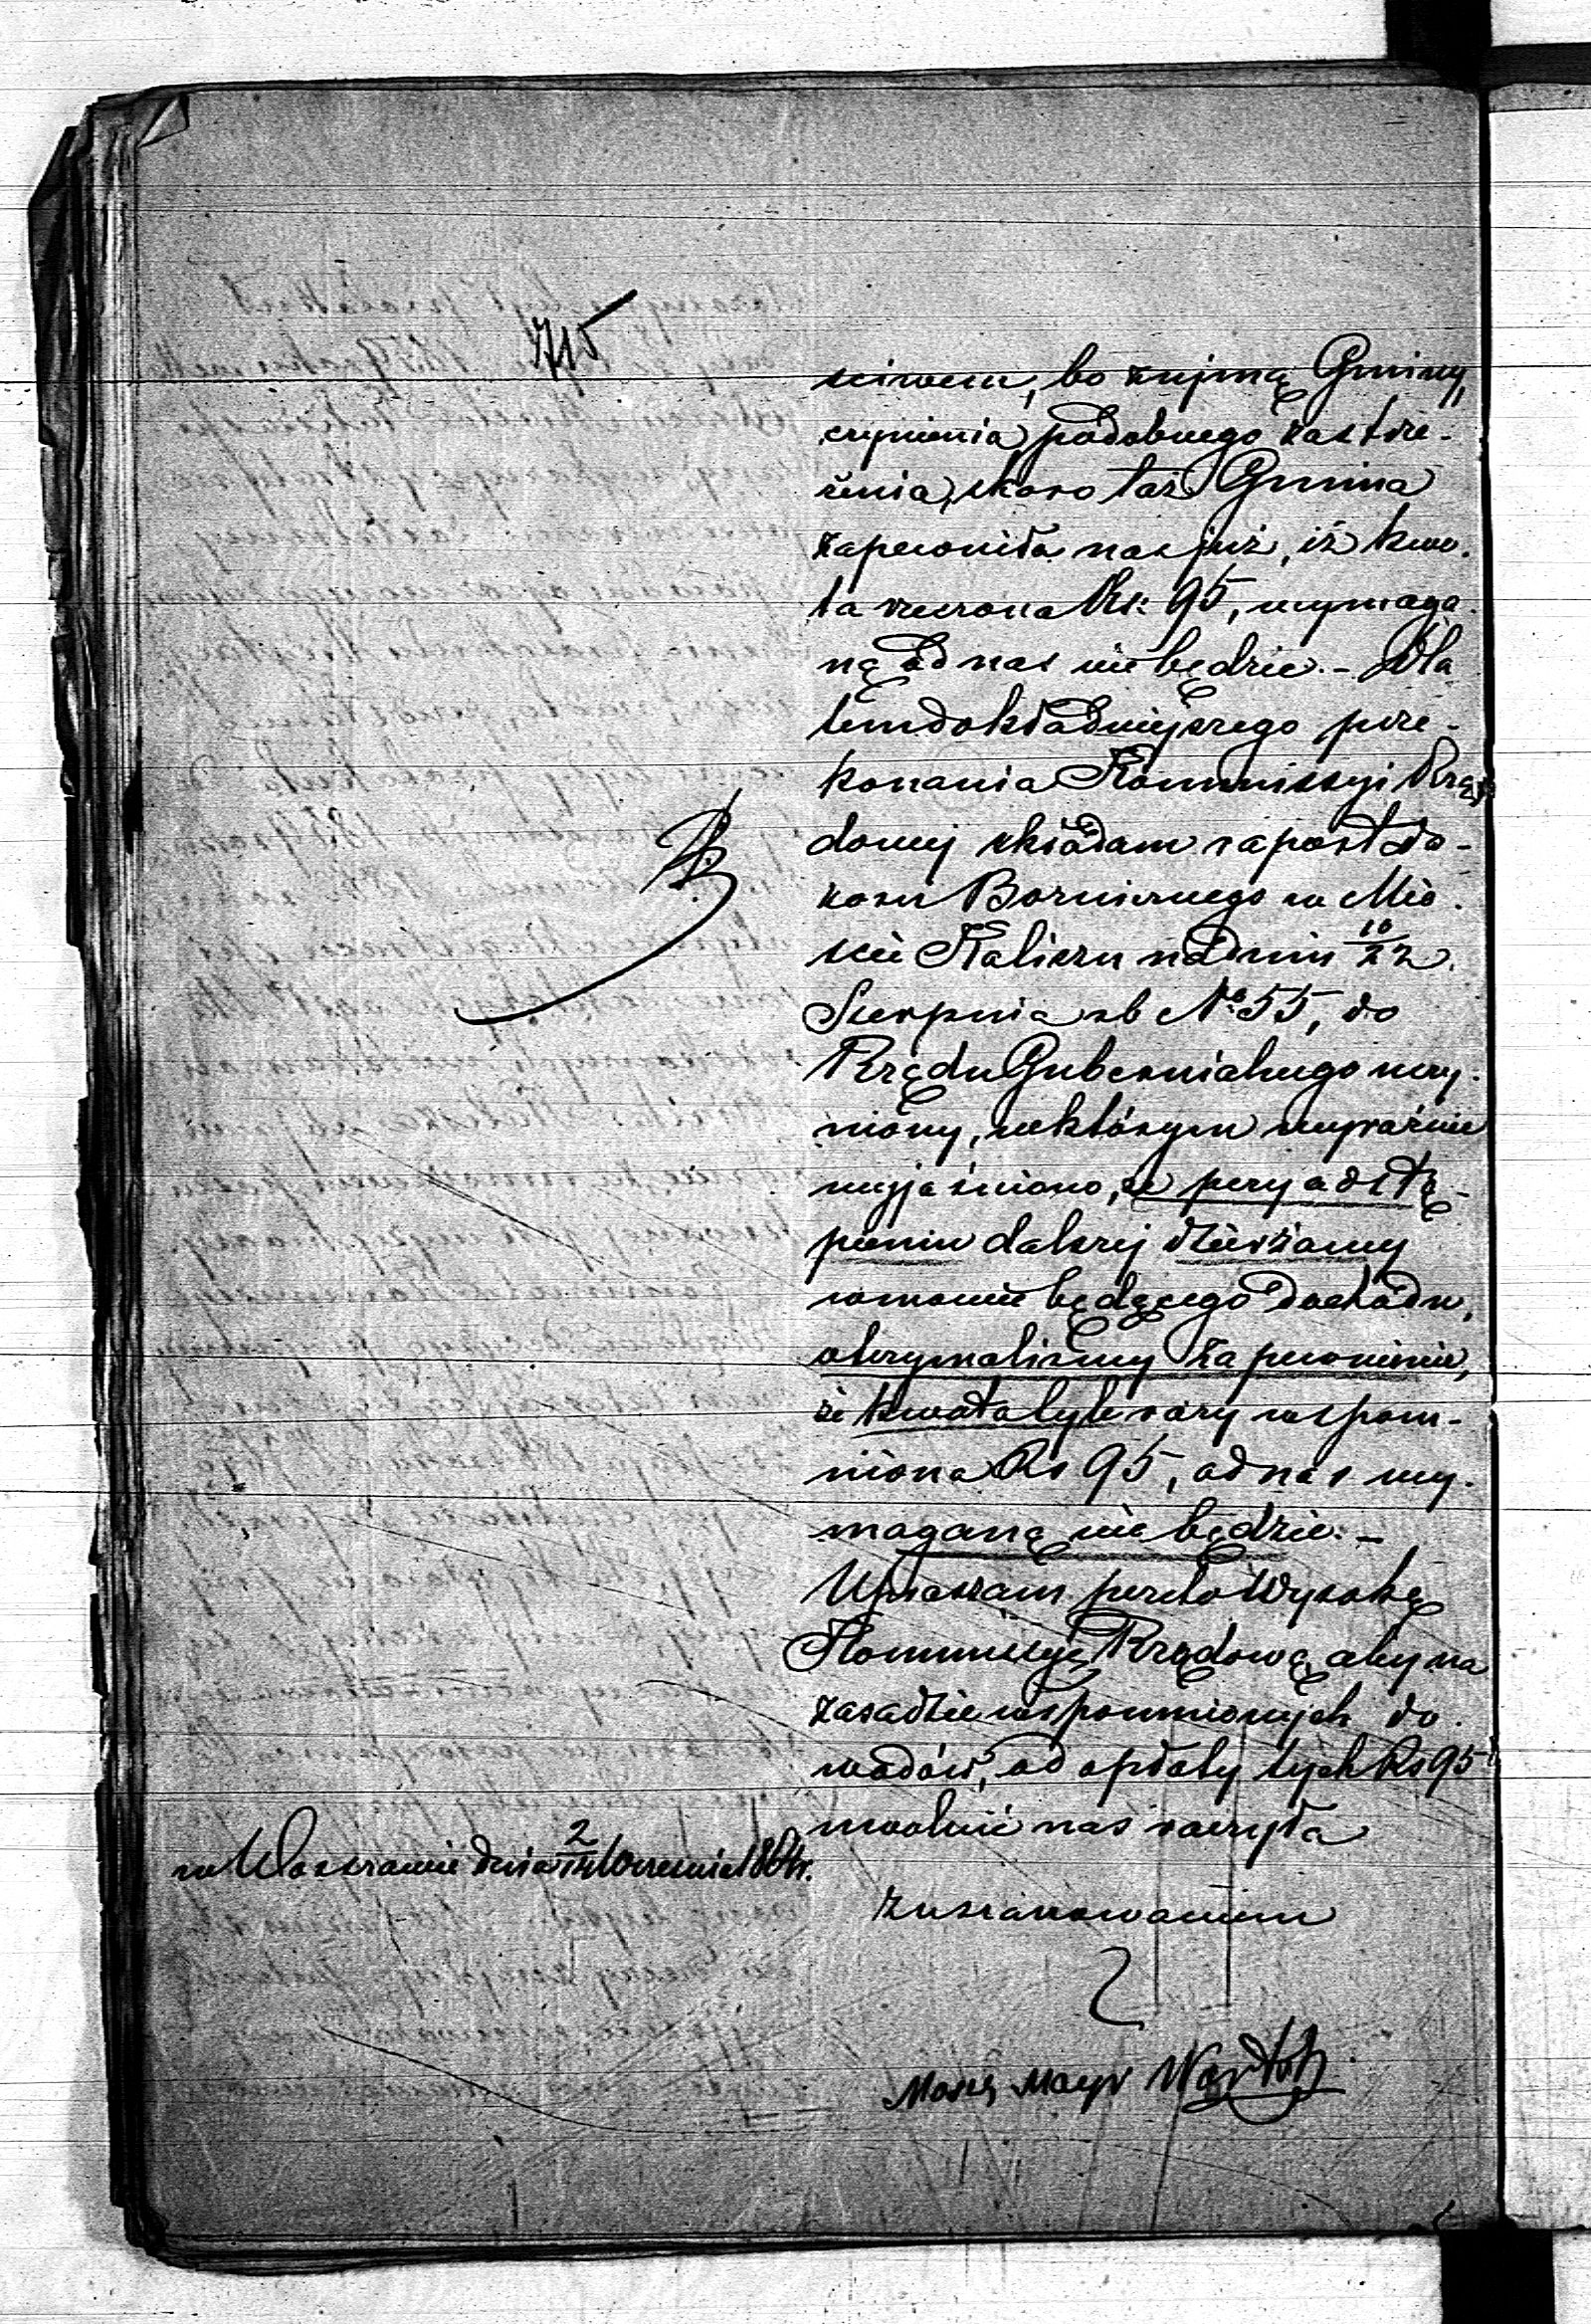 715
sciwem, bo zujmą Gminy,
czynienia podobnego zastrze-
żenia, skoro taż Gmina
zapewniła nas już, iż kwo-
ta rzeczona Rs: 95, wymaga-
ną od nas nie będzie. - Dla
tem dokładniejszego prze-
konania Kommissyi Rzą-
dowej składam raport Do-
zoru Bożniczego w Mie-
ście Kaliszu na dniu 10/22
Sierpnia rb No 55, do
Rządu Gubernialnego uczy-
niony, w którym wyraźnie
wyjaśniono, że przy odstą-
pieniu dalszej dzierżawy
w mowie będącego dochodu,
otrzymaliśmy zapewnienie,
że kwota tyle razy wspom-
niona Rs 95, od nas wy-
maganą nie będzie. -
Upraszam przeto Wysoką
Kommissyę Rządową aby na
zasadzie wspomnionych do-
wodów, od opłaty tych Rs 95
uwolnić nas raczyła
w Warszawie dnia 2/14 Września 1864 r.
z uszanowaniem